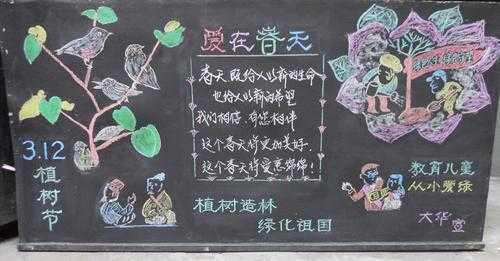 爱在春天
春天既给人以新的生命
也给人以新的希望
我们相信 有您相伴
这个春天将更加美好,
这个春天将爱意绵绵!
3.12
植树节
植树造林
绿化祖国
教育儿童
从小爱绿
大华宣